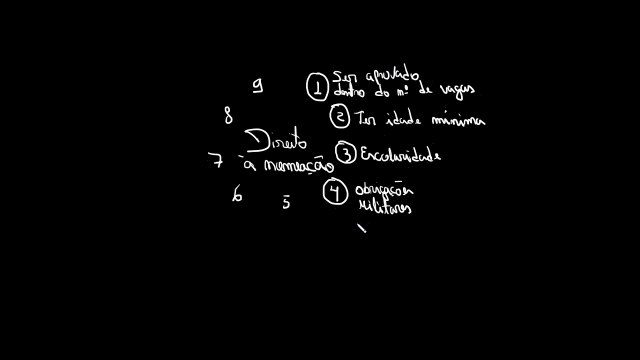 9
① Ser aprovado
dentro do nº de vagas
8
② Ter idade mínima
Direito
7 à nomeação
③ Escolaridade
6
5
④ obrigações
militares